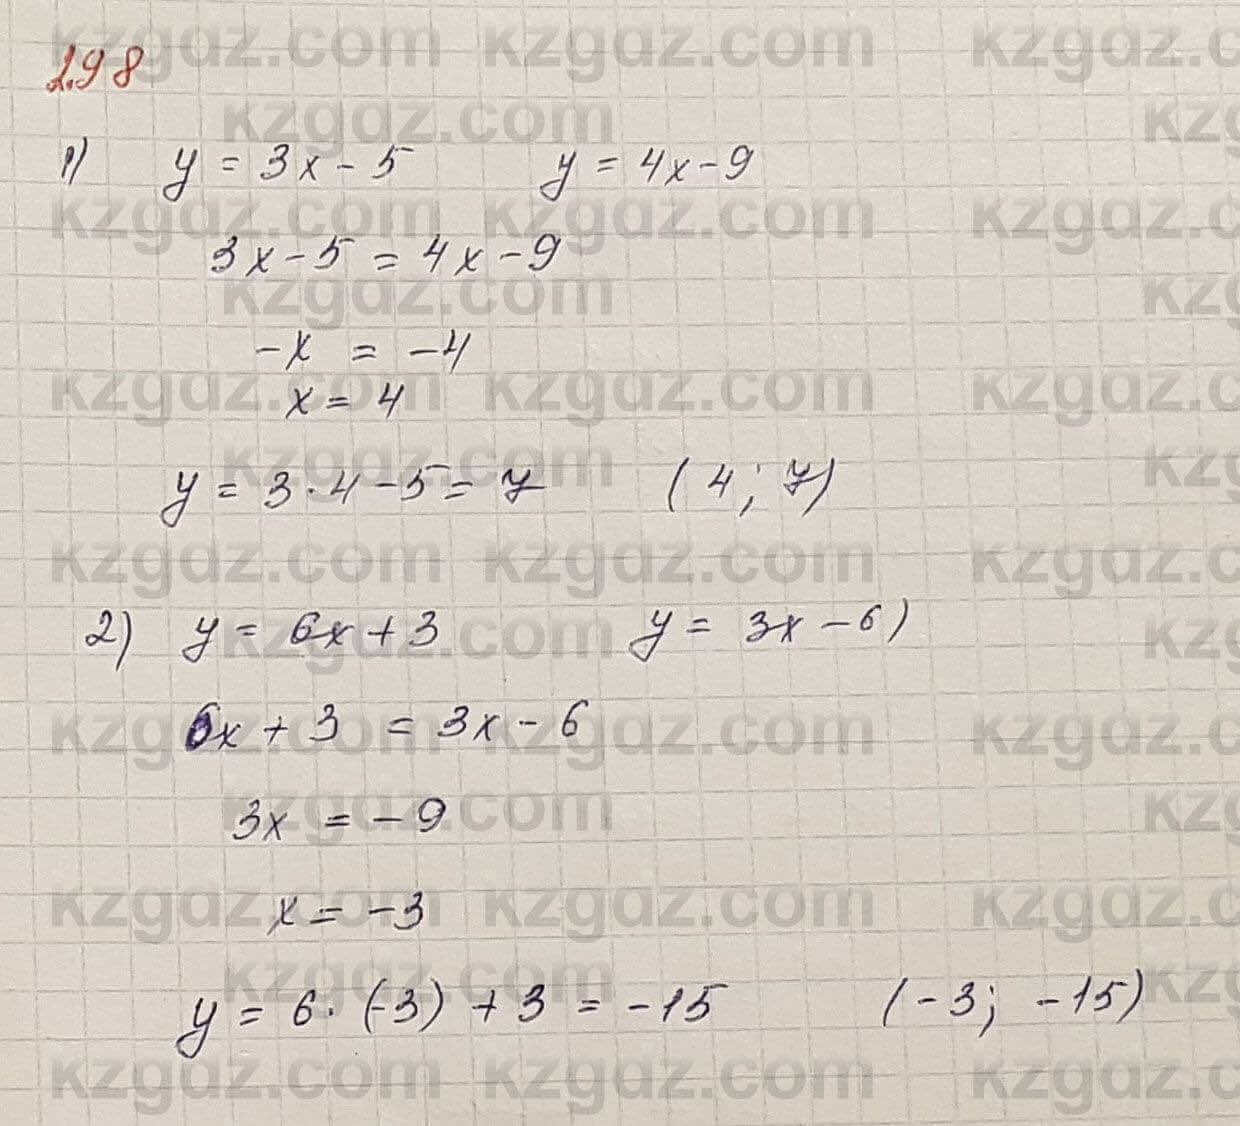 2.98
1) y = 3x - 5 y = 4x - 9
3x - 5 = 4x - 9
-x = -4
x = 4
y = 3 · 4 - 5 = 7 (4; 7)
2) y = 6x + 3 y = 3x - 6)
6x + 3 = 3x - 6
3x = -9
x = -3
y = 6 · (-3) + 3 = -15 (-3; -15)
kzgdz.com